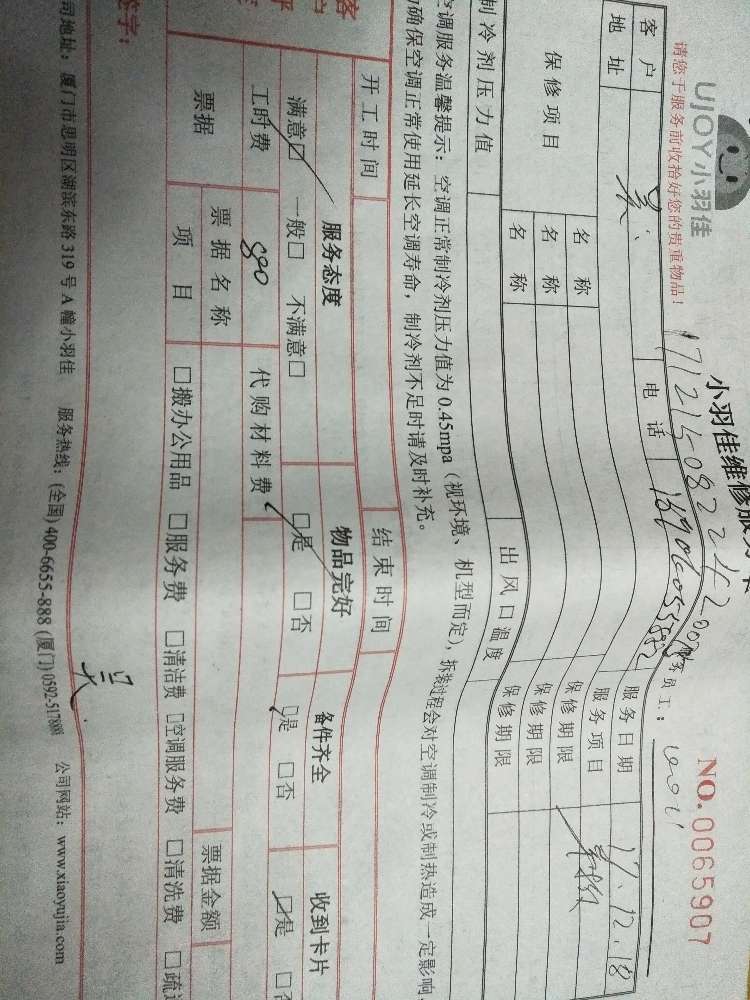 UJOY小羽佳
小羽佳维修服务卡
NO.0065907
请您于服务前收拾好您的贵重物品！
员工：
客户 吴 电话 服务日期 17.12.18
地址 服务项目
保修项目 名称 保修期限
名称 保修期限
名称 保修期限
制冷剂压力值 出风口温度
空调服务温馨提示：空调正常制冷剂压力值为0.45mpa（视环境、机型而定），拆装过程会对空调制冷或制热造成一定影响
确保空调正常使用延长空调寿命，制冷剂不足时请及时补充。
开工时间 结束时间
服务态度 物品完好 备件齐全 收到卡片
满意□ 一般□ 不满意□ □是 □否 □是 □否 □是 □否
工时费 880 代购材料费
票据 票据名称 票据金额
项目 □搬办公用品 □服务费 □清洁费 □空调服务费 □清洗费
签字： 吴
司地址：厦门市思明区湖滨东路319号A幢小羽佳 服务热线：(全国)400-6655-888 (厦门)0592-517888 公司网站：www.xiaoyujia.com